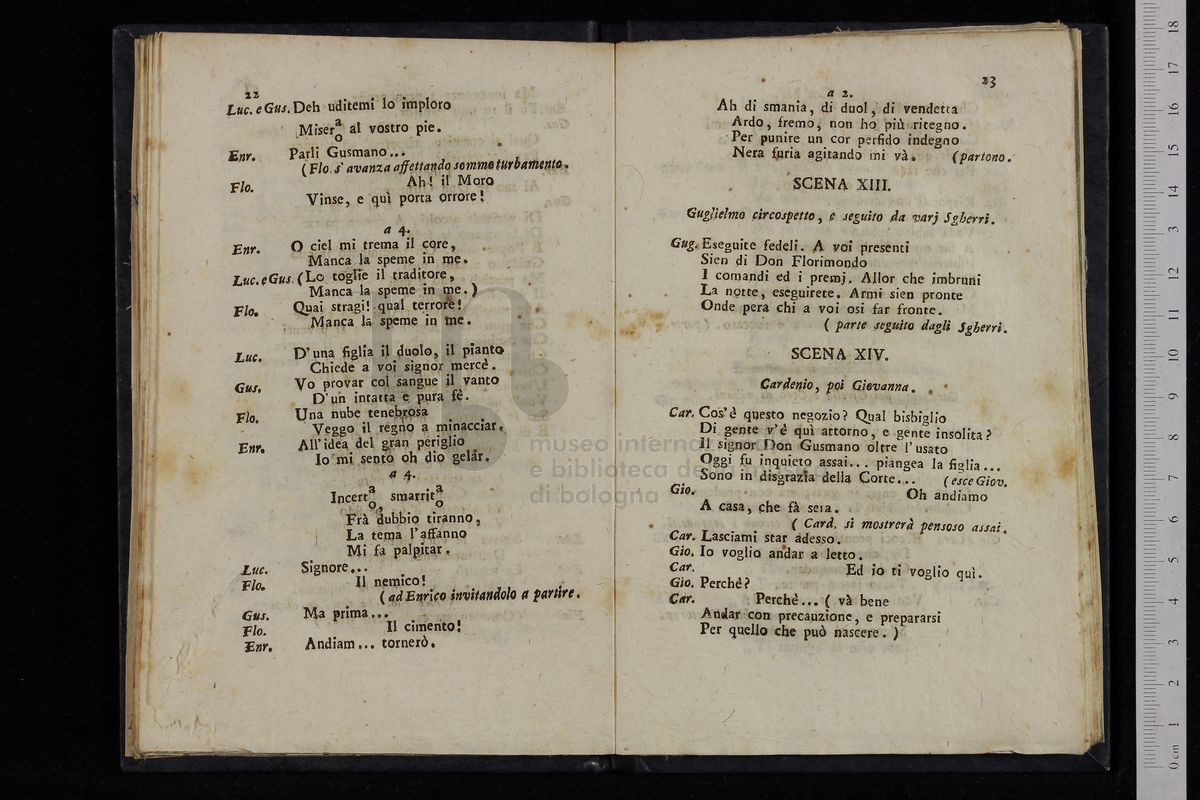 22
Luc. e Gus. Deh uditemi lo imploro
Miser a/o al vostro pie.
Enr. Parli Gusmano...
( Flo. s' avanza affettando sommo turbamento.
Flo. Ah! il Moro
Vinse, e quì porta orrore!
a 4.
Enr. O ciel mi trema il core,
Manca la speme in me.
Luc. e Gus. (Lo toglie il traditore,
Manca la speme in me.)
Flo. Quai stragi! qual terrore!
Manca la speme in me.
Luc. D'una figlia il duolo, il pianto
Chiede a voi signor mercè.
Gus. Vo provar col sangue il vanto
D'un intatta e pura fè.
Flo. Una nube tenebrosa
Veggo il regno a minacciar.
Enr. All'idea del gran periglio
Io mi sento oh dio gelar.
a 4.
Incert a/o, smarrit a/o
Frà dubbio tiranno,
La tema l'affanno
Mi fa palpitar.
Luc. Signore...
Flo. Il nemico!
( ad Enrico invitandolo a partire.
Gus. Ma prima...
Flo. Il cimento!
Enr. Andiam... tornerò.
23
a 2.
Ah di smania, di duol, di vendetta
Ardo, fremo, non ho più ritegno.
Per punire un cor perfido indegno
Nera furia agitando mi và. (partono.
SCENA XIII.
Guglielmo circospetto, e seguito da varj Sgherri.
Gug. Eseguite fedeli. A voi presenti
Sien di Don Florimondo
I comandi ed i premj. Allor che imbruni
La notte, eseguirete. Armi sien pronte
Onde pera chi a voi osi far fronte.
( parte seguito dagli Sgherri.
SCENA XIV.
Cardenio, poi Giovanna.
Car. Cos'è questo negozio? Qual bisbiglio
Di gente v'è quì attorno, e gente insolita?
Il signor Don Gusmano oltre l'usato
Oggi fu inquieto assai... piangea la figlia...
Sono in disgrazia della Corte... (esce Giov.
Gio. Oh andiamo
A casa, che fà sera.
( Card. si mostrerà pensoso assai.
Car. Lasciami star adesso.
Gio. Io voglio andar a letto.
Car. Ed io ti voglio quì.
Gio. Perchè?
Car. Perchè... ( và bene
Andar con precauzione, e prepararsi
Per quello che può nascere. )
museo interna
e biblioteca de
di bologna
0 cm 1 2 3 4 5 6 7 8 9 10 11 12 13 14 15 16 17 18